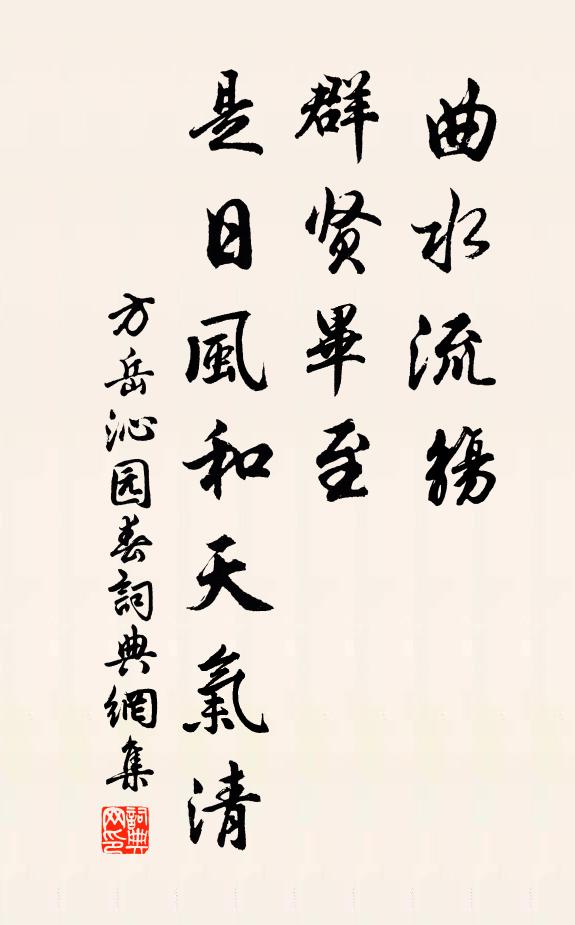 曲水流觴
群贤畢至
是日風和天氣清
方岳沁园春詞典網集
詞典网印